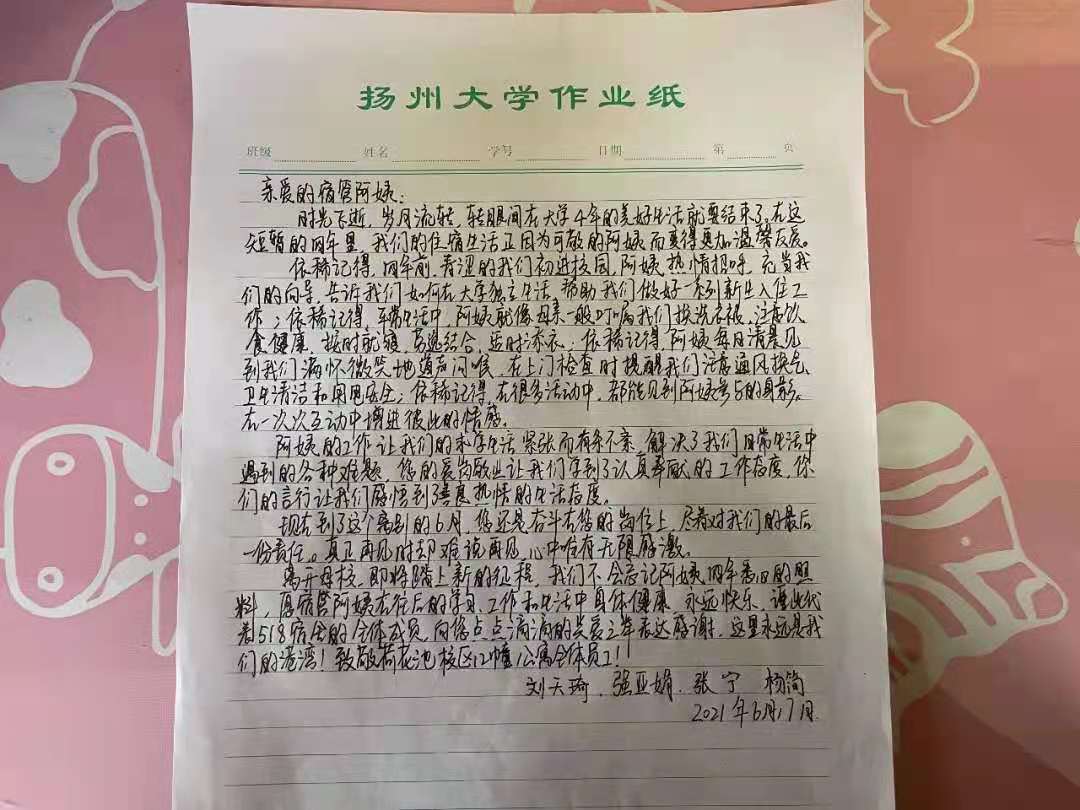 扬州大学作业纸
班级 姓名 学号 日期 第 页
亲爱的宿管阿姨:
时光飞逝,岁月流转,转眼间在大学4年的美好生活就要结束了。在这
短暂的四年里,我们的住宿生活正因为可敬的阿姨而变得更加温馨友爱。
依稀记得,四年前,青涩的我们初进校园,阿姨热情招呼,充当我
们的向导,告诉我们如何在大学独立生活,帮助我们做好一系列新生入住工
作;依稀记得,平常生活中,阿姨就像母亲一般叮嘱我们换洗衣服,注意饮
食健康,按时就寝,劳逸结合,适时添衣;依稀记得,阿姨每日清晨见
到我们满怀微笑地道声问候,在上门检查时提醒我们注意通风换气、
卫生清洁和用电安全;依稀记得,在很多活动中,都能见到阿姨参与的身影。
在一次次互动中增进彼此的情感。
阿姨的工作让我们的求学生活紧张而有条不紊,解决了我们日常生活中
遇到的各种难题。您的爱岗敬业让我们学到了认真奉献的工作态度,你
们的言行让我们感悟到善良热情的生活态度。
现在到了这个离别的6月,您还是奋斗在您的岗位上,尽着对我们的最后
一份责任。真正再见时却难说再见,心中唯有无限感激。
离开母校,即将踏上新的征程,我们不会忘记阿姨四年悉心的照
料,愿宿管阿姨在往后的学习、工作和生活中身体健康,永远快乐,谨此代
表518宿舍的全体成员,向您点点滴滴的关爱之举表达感谢,这里永远是我
们的港湾!致敬荷花池校区12幢公寓全体员工!
刘天琦、强亚娟、张宁 杨简
2021年6月17日